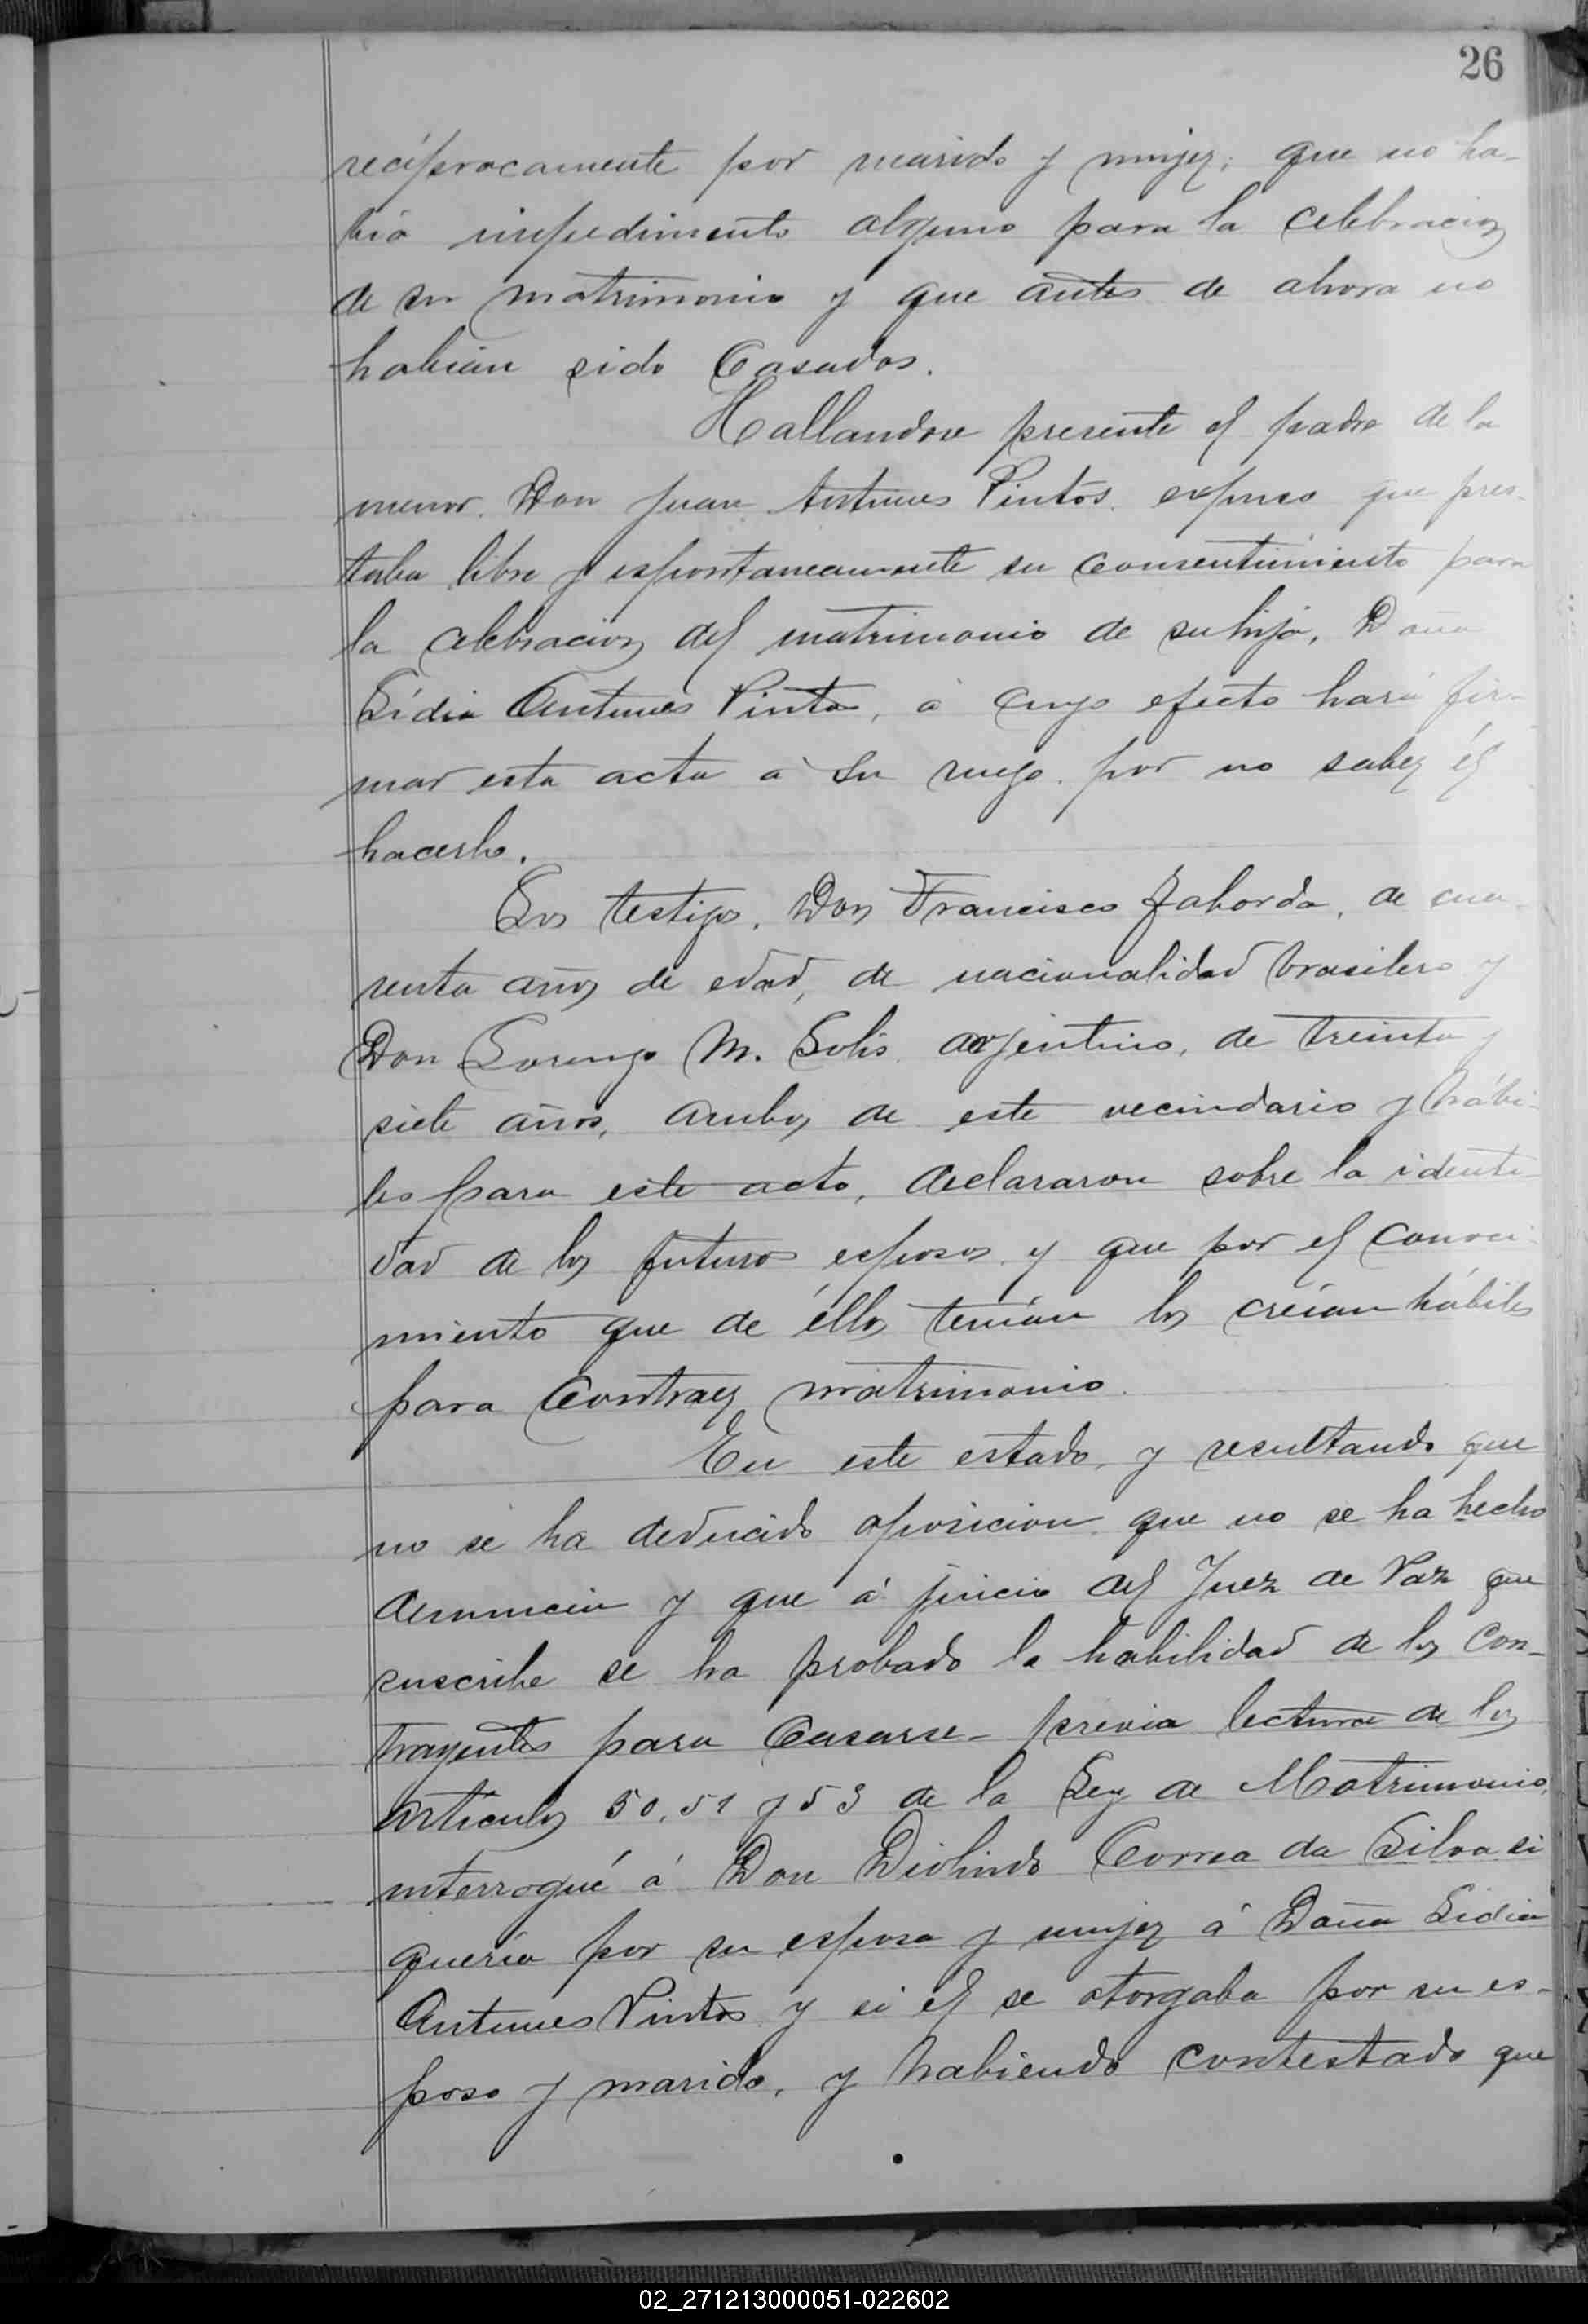 26
reciprocamente por marido y mujer; que no ha-
bía impedimento alguno para la celebracion
de su matrimonio y que antes de ahora no
habian sido Casados.
Hallandose presente el padre de la
menor, Don Juan Antunes Pintos, expuso que pres-
taba libre y espontaneamente su consentimiento para
la celebracion del matrimonio de su hija, Doña
Lídia Antunes Pintos, á cuyo efecto hará fir-
mar esta acta á su ruego por no saber él
hacerlo.
Los testigos, Don Francisco Taborda, de cua-
renta años de edad, de nacionalidad brasilero y
Don Lorenzo M. Solis, argentino, de treinta y
siete años, ambos de este vecindario y hábi-
les para este acto, declararon sobre la identi-
dad de los futuros esposos y que por el conoci-
miento que de éllos tenían los creían hábiles
para Contraer matrimonio.
En este estado, y resultando que
no se ha deducido oposicion que no se ha hecho
denuncia y que á juicio del Juez de Paz que
suscribe se ha probado la habilidad de los con-
trayentes para Casarse - previa lectura de los
artículos 50, 51 y 53 de la Ley de Matrimonio,
interrogué á Don Diolindo Correa da Silva si
quería por su esposa y mujer á Doña Lidia
Antunes Pintos y si él se otorgaba por su es-
poso y marido, y habiendo contestado que
02_271213000051-022602